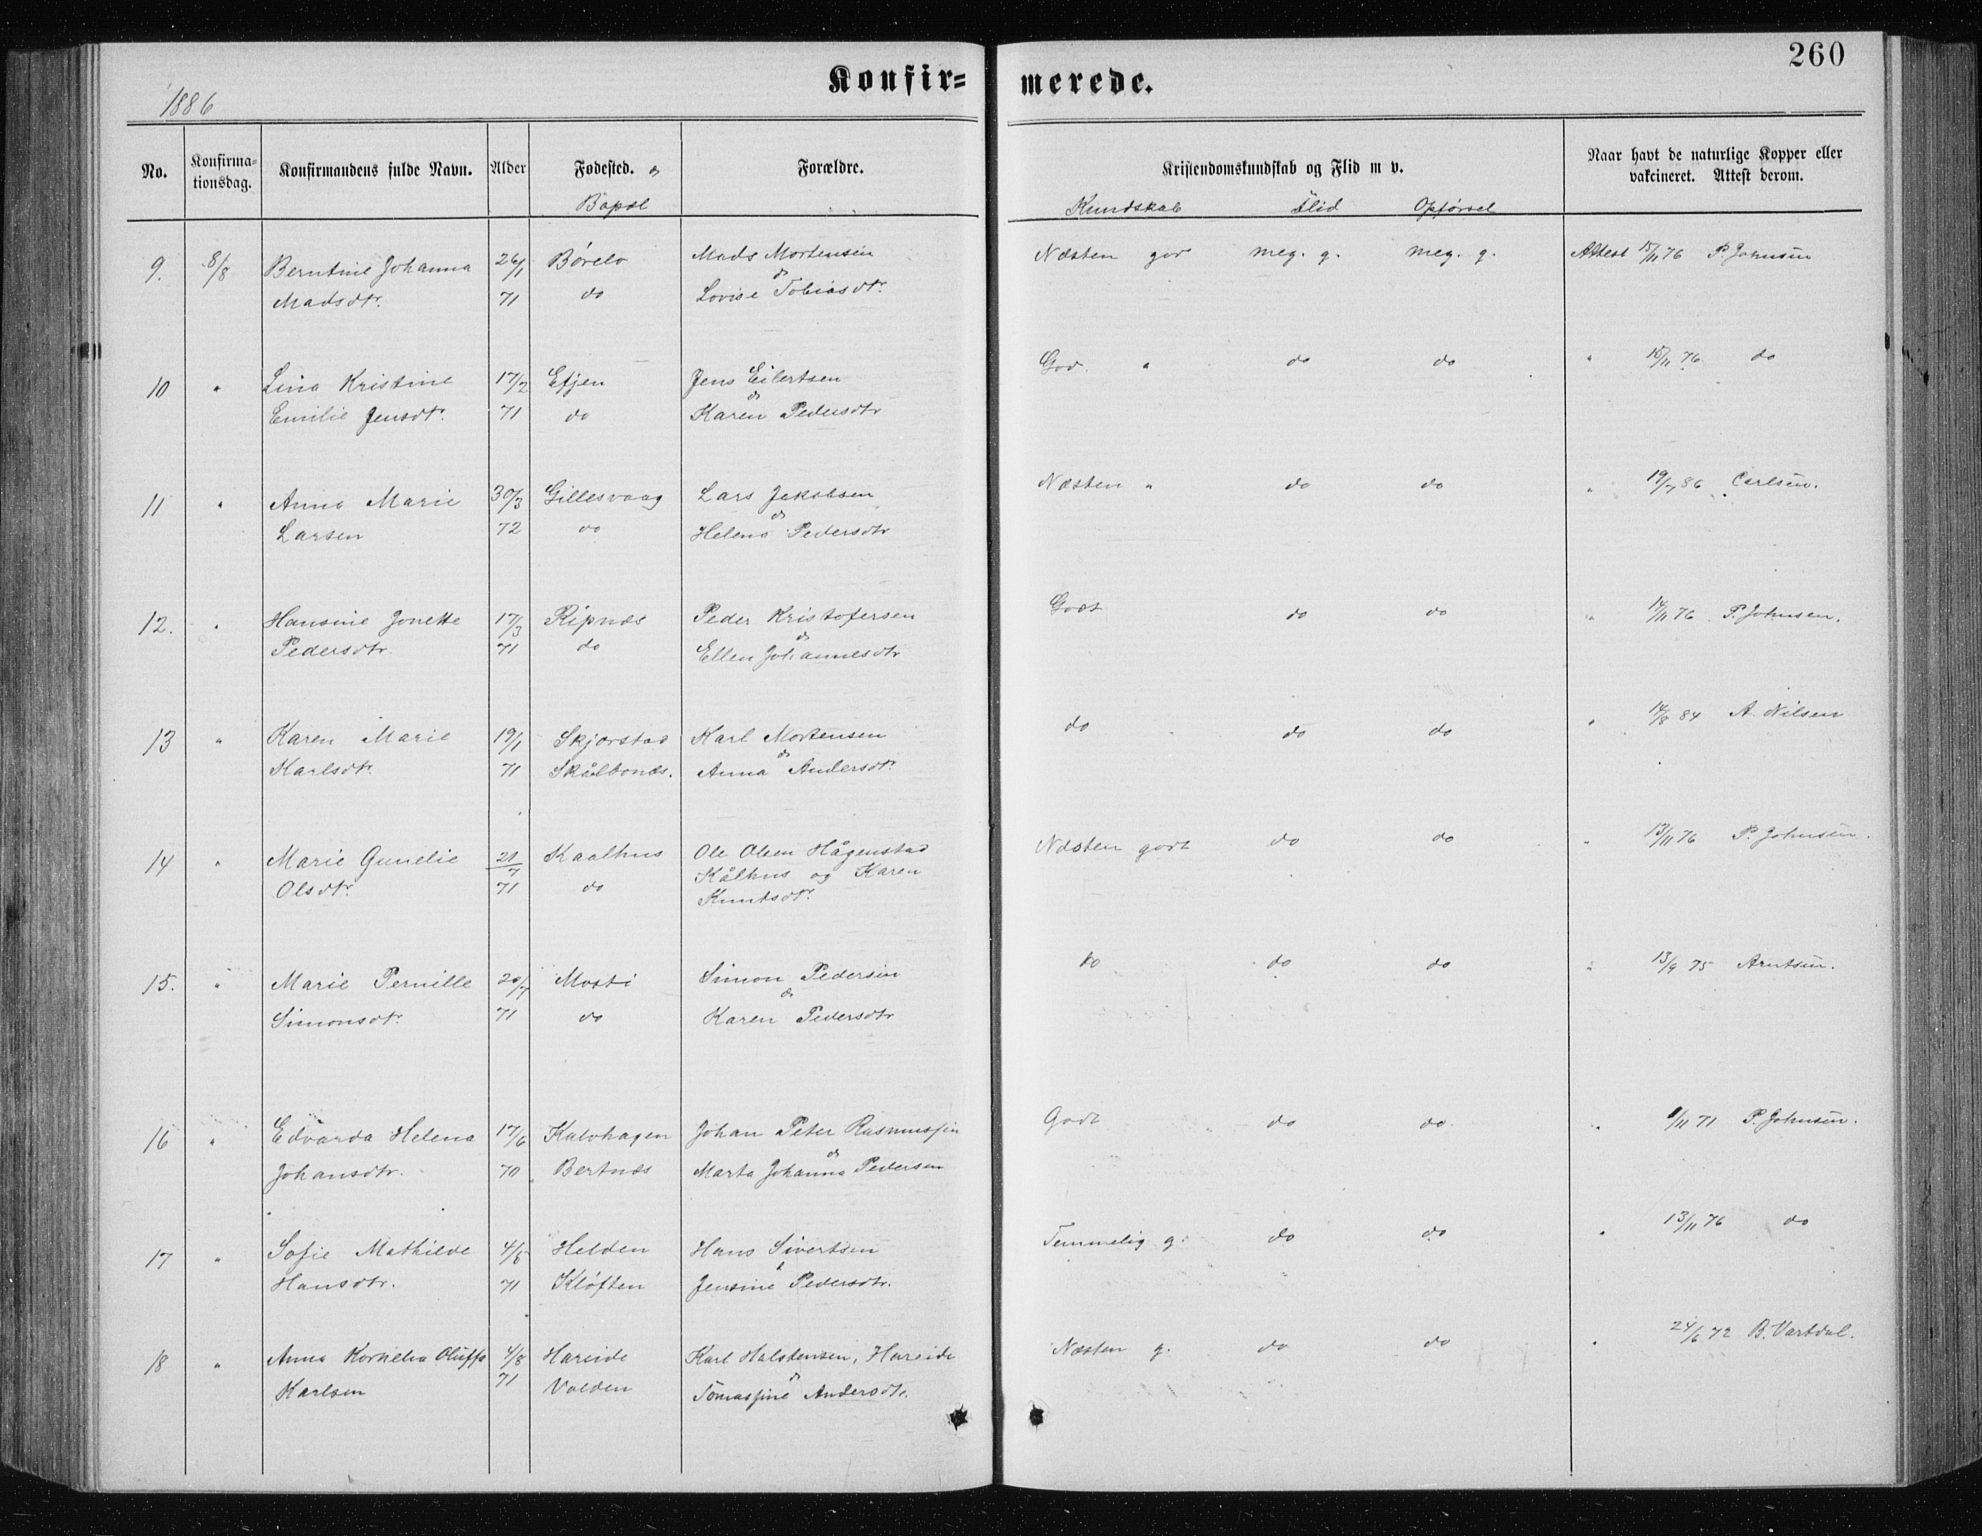 260
Konfir=
merede.
1886
No.
Konfirma-
tionsdag.
Konfirmandens fulde Navn.
Alder
Fødested. og
Bopæl
Forældre.
Kristendomskundskab og Flid m v.
Kundskab Flid Opførsel
Naar havt de naturlige Kopper eller
vakcineret. Attest derom.
9. 8/8 Berntine Johanna 26/1 Børelv Mads Mortensen Næsten god meg. g. meg. g. Attest 15/11 76 P. Johnsen
Madsdtr. 71 do & Lovise Tobiasdtr.
10 " Lina Kristine 17/2 Efjen Jens Eilertsen God " do do " 15/11 76 do
Emilie Jensdtr. 71 do & Karen Pedersdtr
11 " Anna Marie 30/3 Gillesvaag Lars Jakobsen Næsten " do do " 19/7 86 Carlsen.
Larsen 72 do & Helena Pedersdtr
12. " Hansine Jonette 17/3 Ripnæs Peder Kristofersen Godt do do " 14/11 76 P. Johnsen.
Pedersdtr 71 do & Ellen Johannesdtr
13 " Karen Marie 19/1 Skjørstad Karl Mortensen do do do " 14/8 84 A. Nilsen
Karlsdtr. 71 Skålbonæs. & Anna Andersdtr.
14 " Marie Gunelie 21/7 Kaalhus Ole Olsen Hågenstad Næsten godt do do " 13/11 76 P. Johnsen.
Olsdtr. 71 do Kålhus og Karen
Knutsdtr.
15. " Marie Pernille 20/7 Mosti Simon Pedersen do do do " 13/9 75 Arntsen.
Simonsdtr. 71 do & Karen Pedersdtr
16 " Edvarda Helena 17/6 Kalvhagen Johan Peter Rasmussen Godt do do " 9/11 71 P. Johnsen.
Johansdtr. 70 Bertnæs & Marta Johanna Pedersen
17 " Sofie Mathilde 4/5 Helden Hans Sivertsen Temmelig g. do do " 13/11 76 do
Hansdtr. 71 Kløften & Jensine Pedersdtr.
18 " Anna Kornelia Oluffa 4/8 Hareide Karl Halstensen, Hareide Næsten g. do do " 24/6 72 B. Vartdal.
Karlsen 71 Volden & Tomassine Andersdtr.